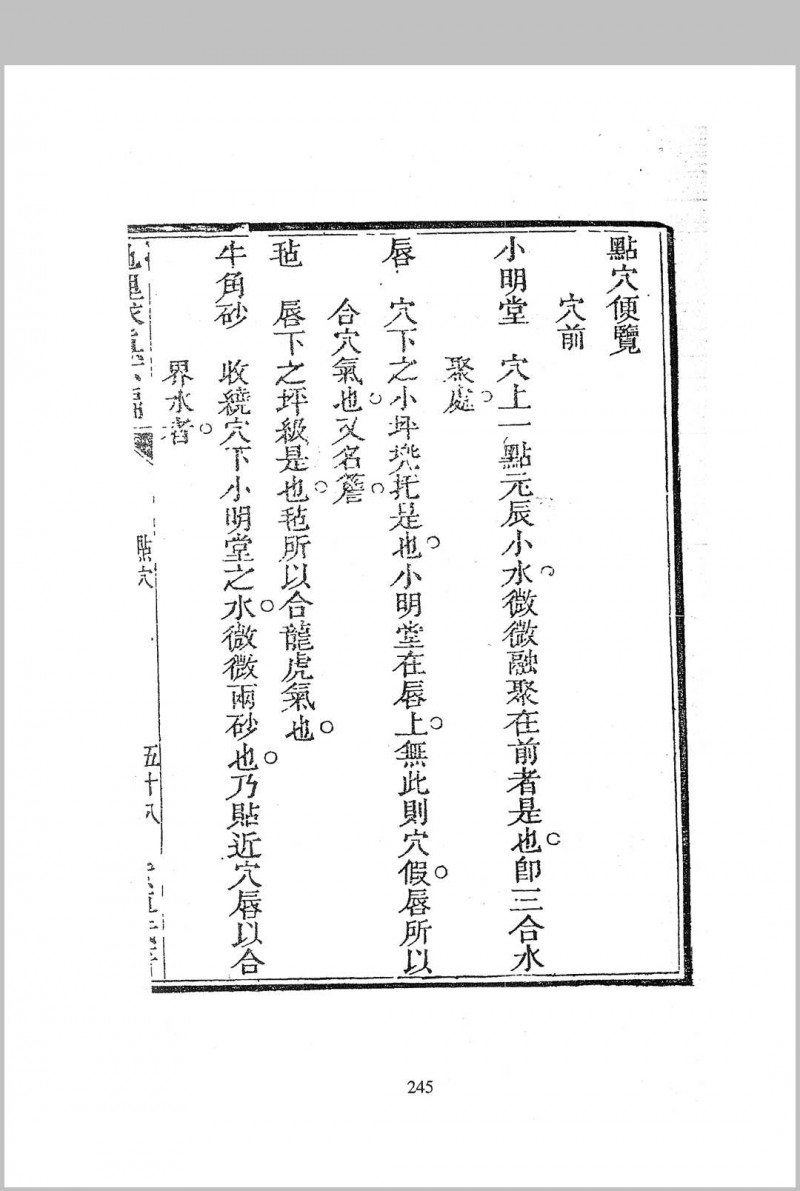 點穴便覽
穴前
小明堂　穴上一點元辰小水。微微融聚在前者是也。卽三合水
聚處。
唇　穴下之小坪兠托是也。小明堂在唇上。無此則穴假。唇所以
合穴氣也。又名簷。
毡　唇下之坪級是也。毡所以合龍虎氣也。
牛角砂　收繞穴下小明堂之水。微微兩砂也。乃貼近穴唇以合
界水者。
點穴
五十八
245